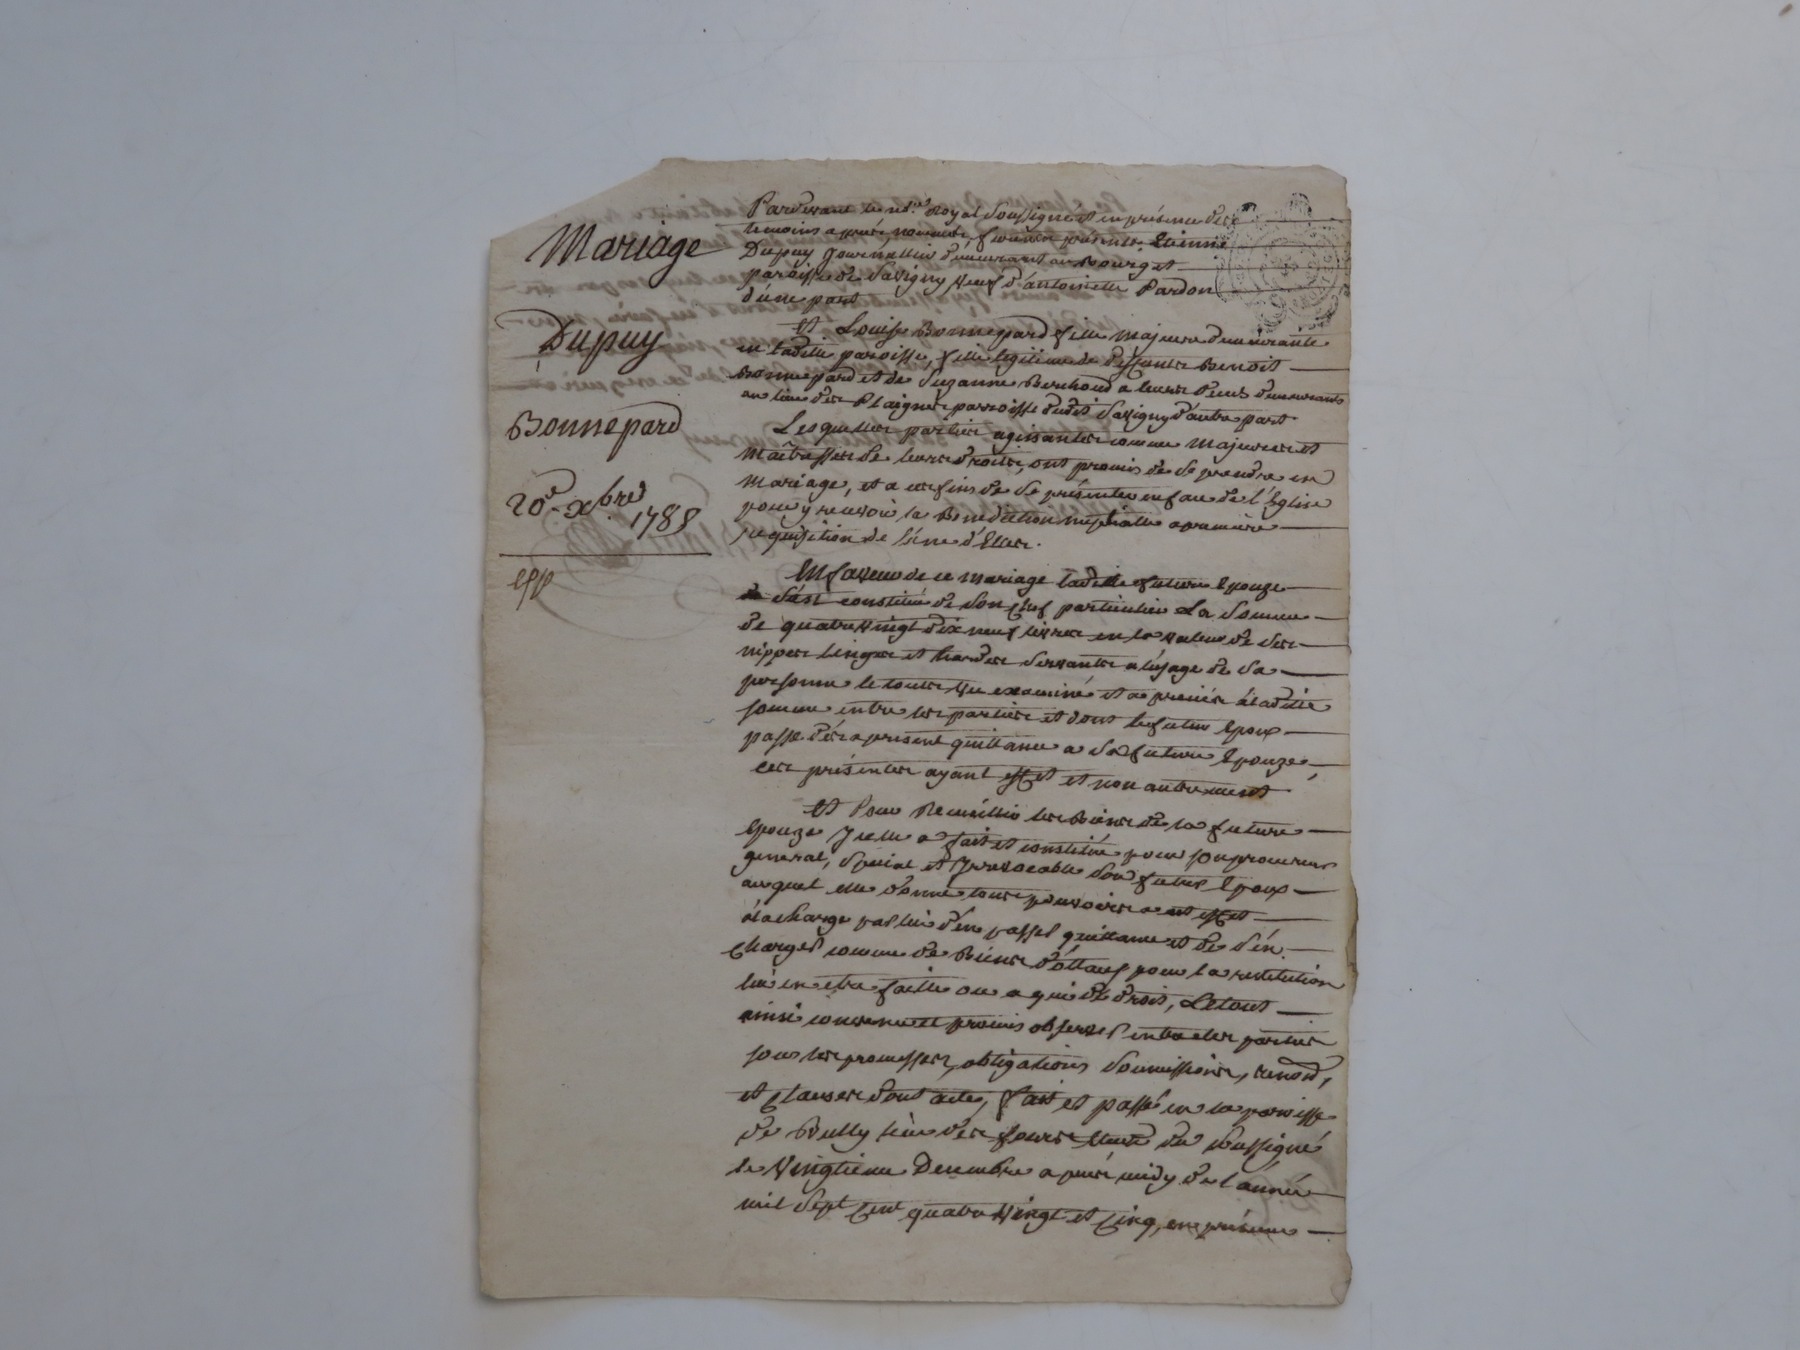 Mariage
Dupuy
Bonnepard
20e. Xbre 1785
Exp
Pardevant le not.re Royal Soussigné et en présence des
temoins apres nommés, furent présents Etienne
Dupuy Journallier demeurant au Bourg et
paroisse de Savigny veuf d'antoinette Pardon
d'une part
Et Louise Bonnepard fille majeure demeurante
en ladite paroisse, fille legitime de deffunts Benoit
Bonnepard et de Suzanne Berthoud a leurs deuts demeurants
au lieu des Plaignes parroisse dudit Savigny d'autre part
Lesquelles parties agissantes comme majeures et
maîtresses de leurs droits, ont promis de se prendre en
mariage, et a ces fins de se présenter en face de l'Eglise
pour y recevoir la Benediction nuptialle a premiere
requisition de l'une d'Elles.
En faveur de ce mariage ladite future Epouze
s'est constitué de son chef particulier La somme
de quatre vingt dix neuf livres en la valeur de ses
nippes linges et hardes servantes a l'usage de sa
personne le tout vu examiné et apprecié a ladite
somme entre les parties et dont le futur Epoux
passe dès a present quittance a sa future Epouze
ces présentes ayant effet et non autrement
Et Pour Recueillir les Biens de la future
Epouze Icelle a fait et constitué pour son procureur
general, Special et Irrevocable son futur Epoux
auquel elle donne tous pouvoirs a cet effet
a la charge par lui d'en passer quittance et de s'en
charger comme de Biens dottaux pour la restitution
lui en etre faitte ou a qui de droit, Le tout
ainsi convenu et promis observer entre les parties
sous les promesses, obligations soumissions, renond,
et Clauses dont acte, fait et passé en la paroisse
de Bully lieu des fours Etude du soussigné
le vingtieme Decembre apres midy de l'année
mil sept cent quatre vingt et cinq, en présence